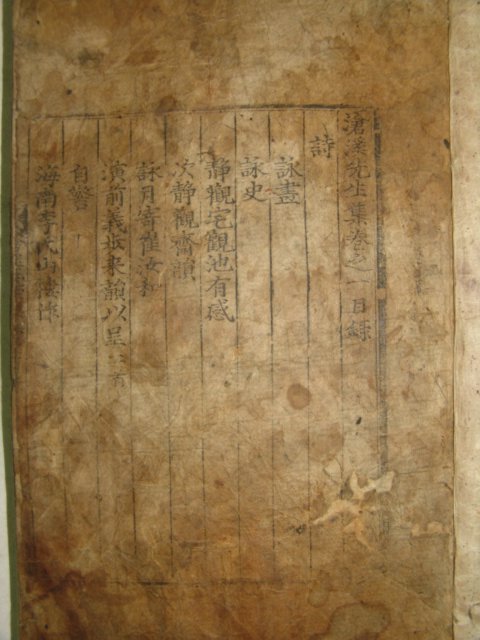 滄溪先生集卷之一目錄
詩
詠晝
詠史
靜觀宅觀池有感
次靜觀齋韻
詠月寄崔汝和
演前義步來韻以呈
自警
海南李氏山樓作